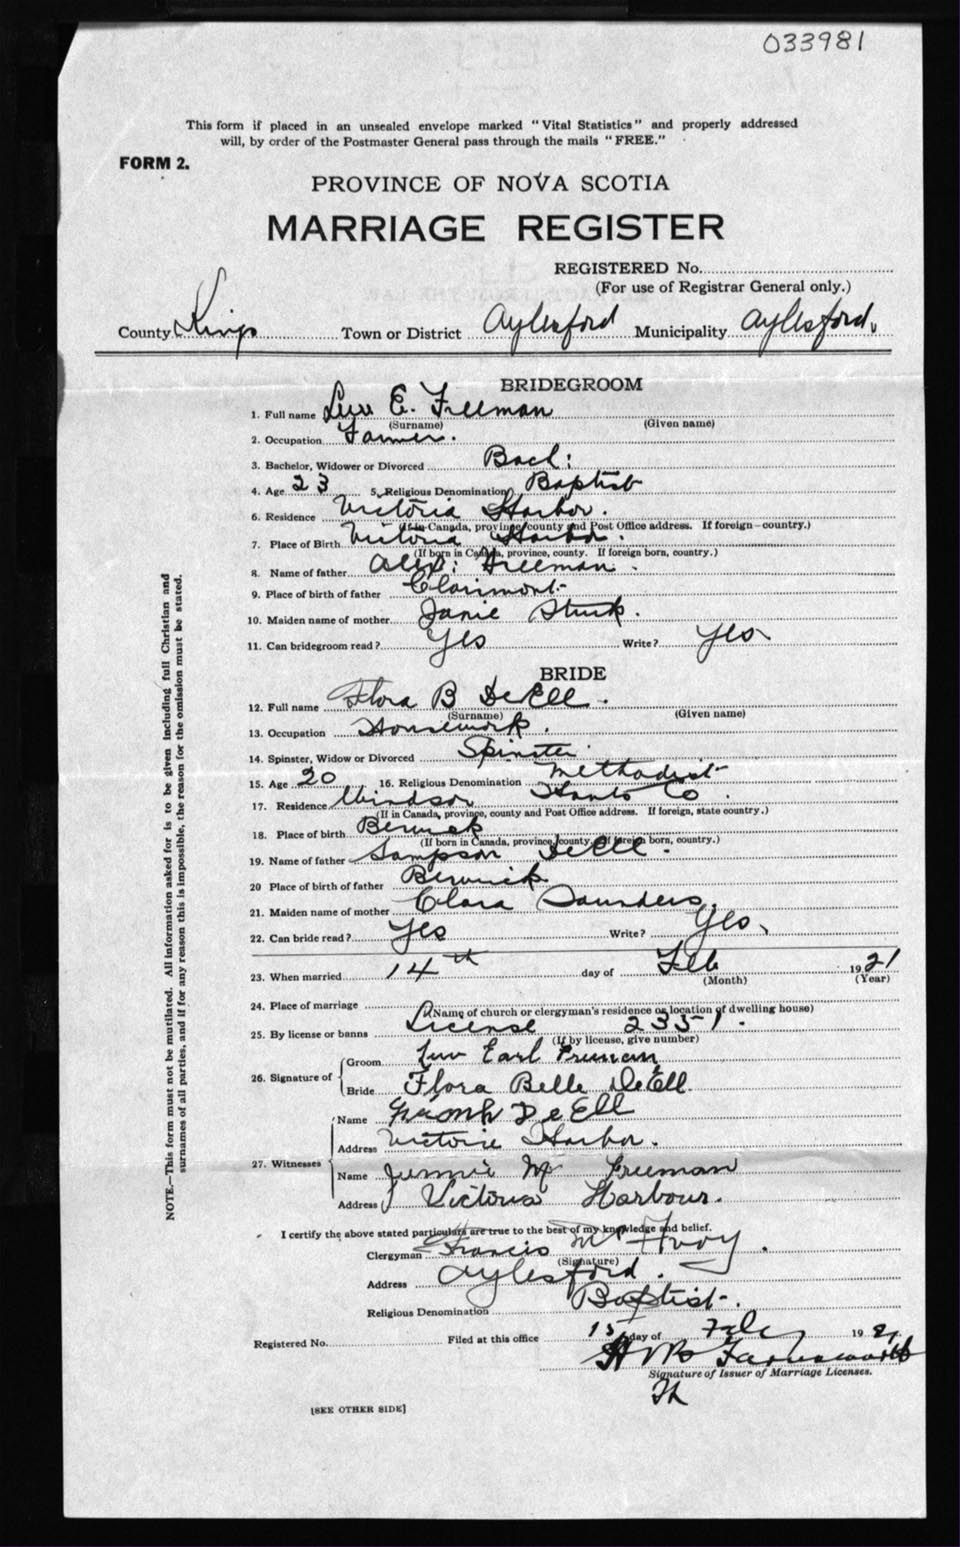 033981
This form if placed in an unsealed envelope marked "Vital Statistics" and properly addressed
will, by order of the Postmaster General pass through the mails "FREE."
FORM 2.
PROVINCE OF NOVA SCOTIA
MARRIAGE REGISTER
REGISTERED No.
(For use of Registrar General only.)
County Kings Town or District Aylesford Municipality Aylesford,
BRIDEGROOM
1. Full name E. Freeman
(Surname) (Given name)
2. Occupation Farmer.
3. Bachelor, Widower or Divorced Bach:
4. Age 23 5. Religious Denomination Baptist
6. Residence Victoria Harbor.
(If in Canada, province, county and Post Office address. If foreign—country.)
7. Place of Birth Victoria Harbor.
(If born in Canada, province, county. If foreign born, country.)
8. Name of father Alex: Freeman.
9. Place of birth of father Clarimont
10. Maiden name of mother Janie
11. Can bridegroom read? Yes Write? Yes
BRIDE
12. Full name Flora B DeEll.
(Surname) (Given name)
13. Occupation Housework.
14. Spinster, Widow or Divorced Spinster
15. Age 20 16. Religious Denomination Methodist
17. Residence Windsor Hants Co.
(If in Canada, province, county and Post Office address. If foreign, state country.)
18. Place of birth Berwick
(If born in Canada, province, county. If foreign born, country.)
19. Name of father Sampson DeEll.
20 Place of birth of father Berwick
21. Maiden name of mother Clara Saunders.
22. Can bride read? Yes Write? Yes,
23. When married 14th day of Feb 1921
(Month) (Year)
24. Place of marriage
(Name of church or clergyman's residence or location of dwelling house)
25. By license or banns License 2351.
(If by license, give number)
26. Signature of
Groom Earl Freeman
Bride Flora Belle DeEll.
27. Witnesses
Name Frank DeEll
Address Victoria Harbor.
Name Jennie M Freeman
Address Victoria Harbour.
I certify the above stated particulars are true to the best of my knowledge and belief.
Clergyman Francis
(Signature)
Address Aylesford.
Religious Denomination Baptist.
Registered No. Filed at this office 15 day of Feby 1921
Farnsworth
Signature of Issuer of Marriage Licenses.
[SEE OTHER SIDE]
NOTE.—This form must not be mutilated. All information asked for is to be given including full Christian and
surnames of all parties, and if for any reason this is impossible, the reason for the omission must be stated.